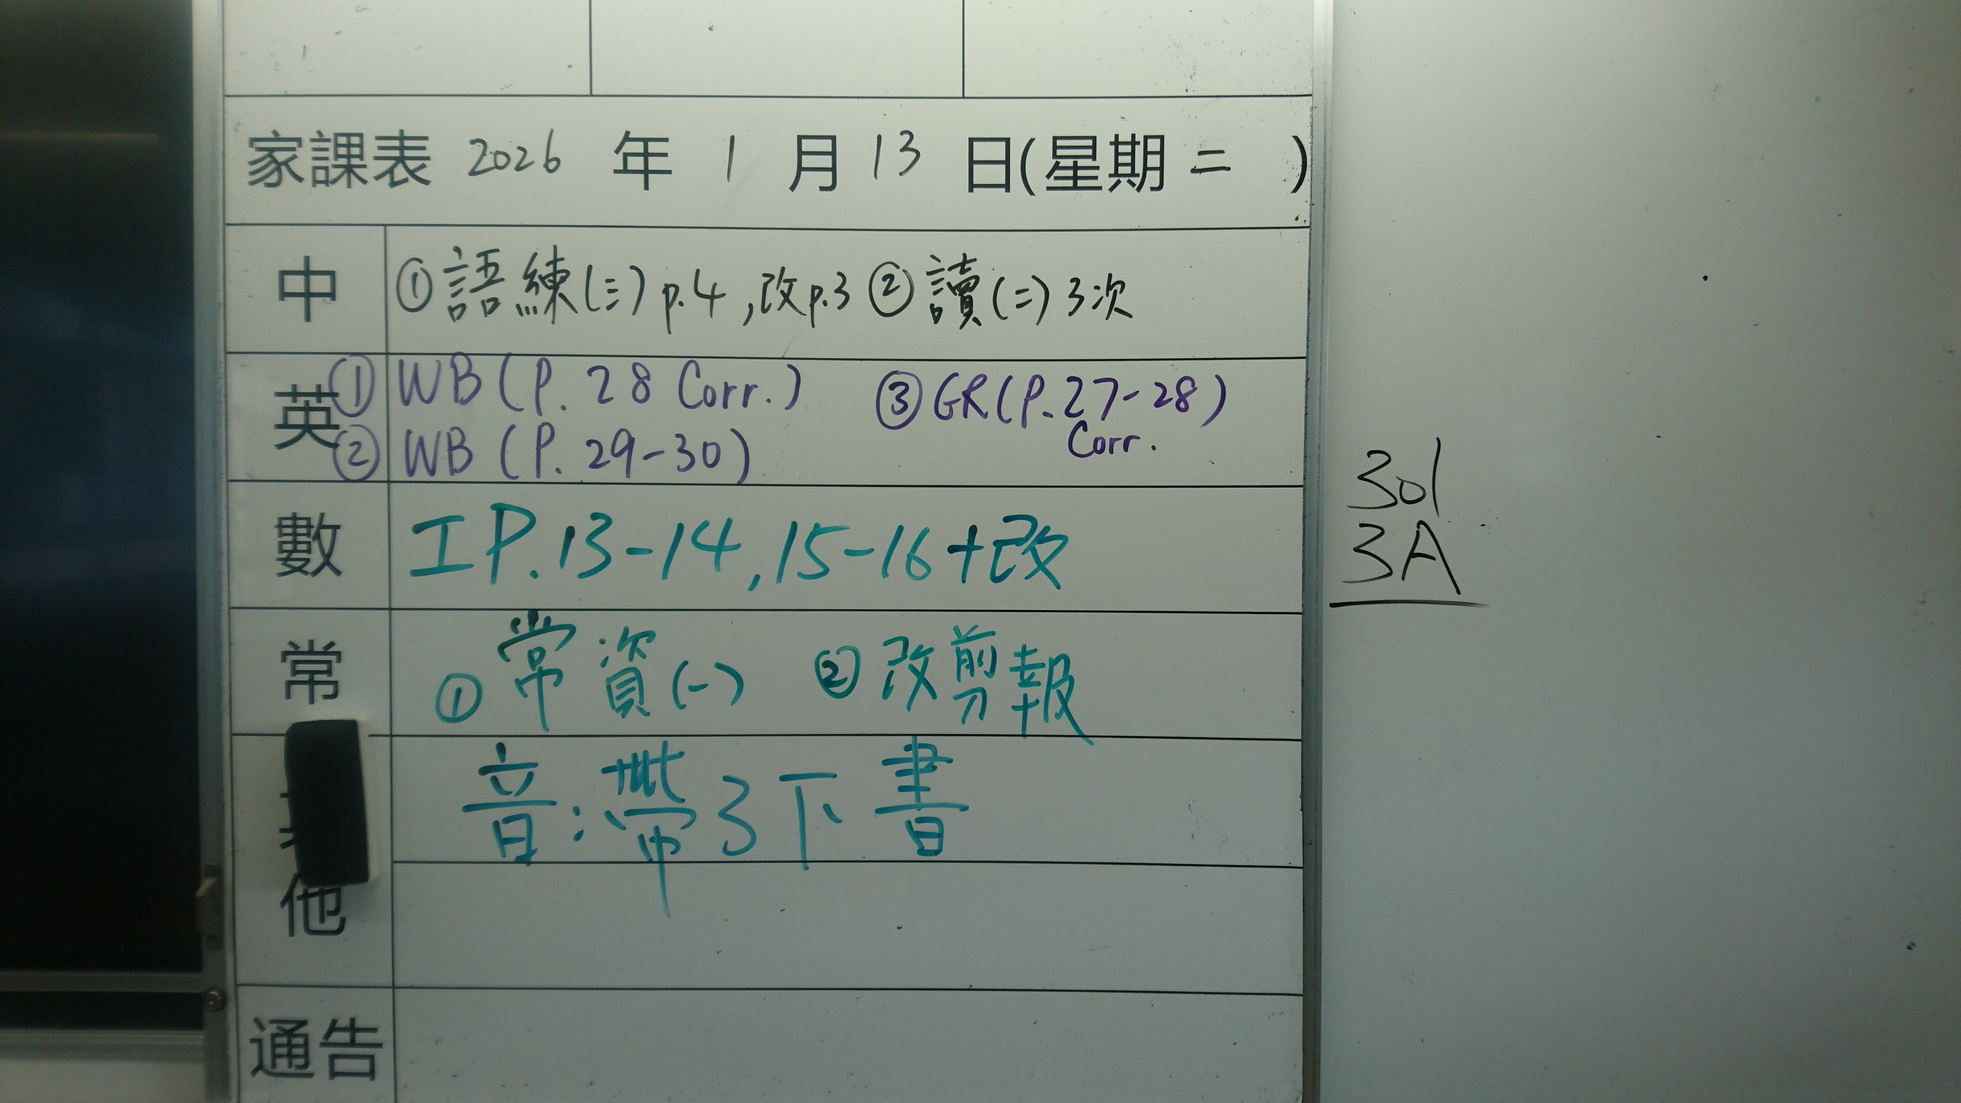 家課表 2026 年 1 月 13 日(星期二 )
中 ①語練(三)p.4,改p.3 ②讀(二)3次
英 ① WB(P.28 Corr.) ③GR(P.27-28)
Corr.
② WB (P. 29-30)
數 工P.13-14,15-16+改
常 ①常資(一) ②改剪報
音:帶3下書
其他
通告
301
3A